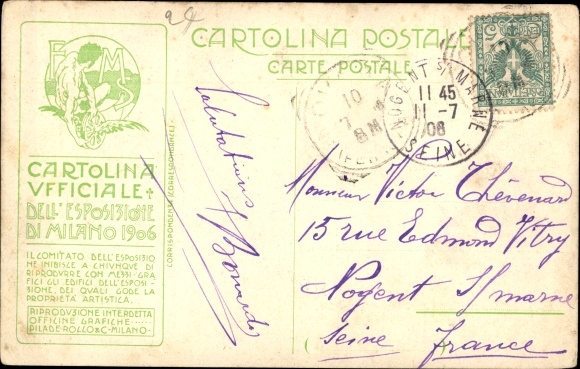 24
CARTOLINA POSTALE
CARTE POSTALE
E M S
CARTOLINA
VFFICIALE
DELL'ESPOSIZIONE
DI MILANO 1906
IL COMITATO DELL'ESPOSIZIO
NE INIBISCE A CHIVNQVE DI
RIPRODVRRE CON MEZZI GRA
FICI GLI EDIFICI DELL'ESPOSI-
ZIONE, DEI QVALI GODE LA
PROPRIETÀ ARTISTICA.
RIPRODVZIONE INTERDETTA
OFFICINE GRAFICHE
PILADE-ROCCO & C-MILANO-
CORRISPONDENZA (CORRESPONDANCE)
Salutations
10
7
8M
NOGENT S/ MARNE
11 45
11 -7
06
SEINE
5
Monsieur Victor Thévenard
15 rue Edmond Vitry
Nogent S/ marne
Seine France